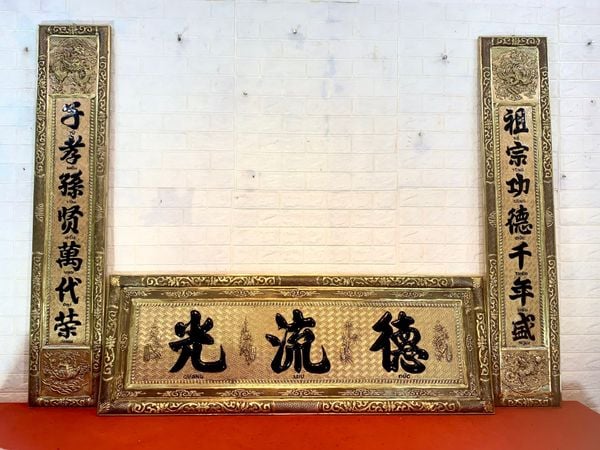 祖宗功德千年盛
子孝孫贤萬代荣
德流光
ĐỨC LƯU QUANG